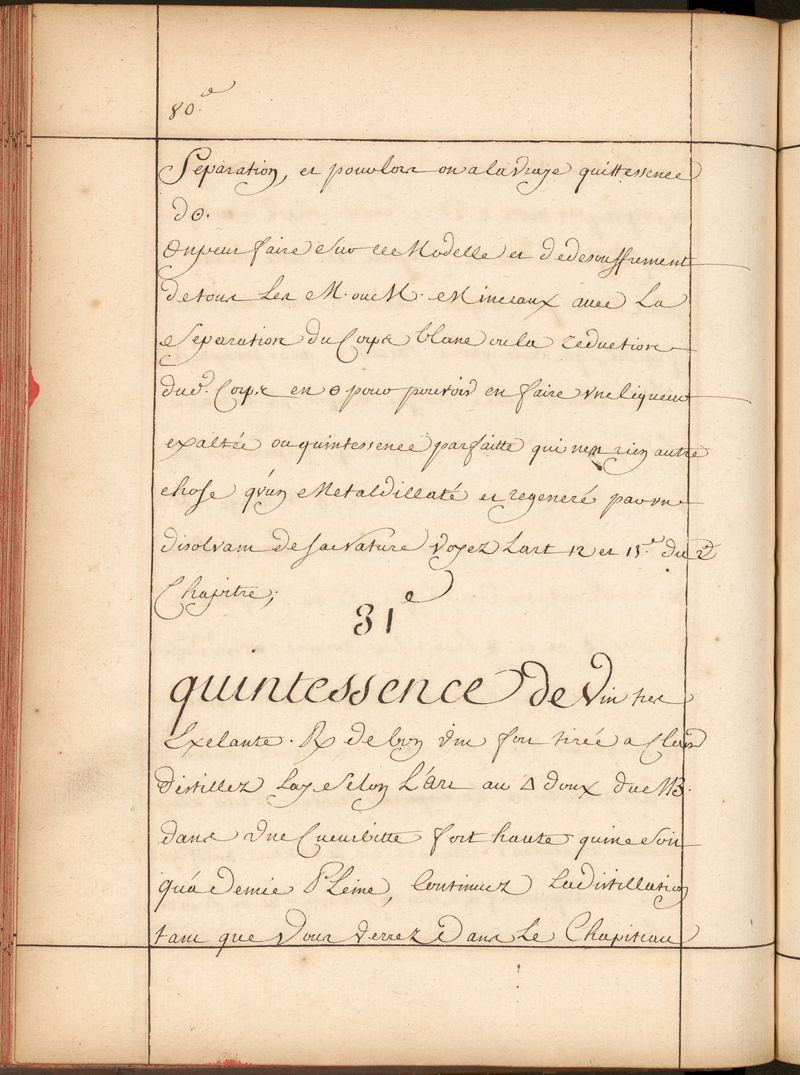 80.e
Separation, et pour lors on a la Vraye quittessence
d☉.
On peut faire sur ce Modelle et dedesouffrement
de tous Les M. ou M. Mineraux avec La
Separation du Corps blanc ou la reduction
dud. Corps en ⊖ pour pouvoir en faire vne liqueur
exaltée ou quintessence parfaitte qui nest rien autre
chose q'un Metal dillaté et regeneré par vn
disolvant de sa Nature Voyez Lart 12 et 15.e du 2d
Chapitre;
31e
quintessence de Vin tres
Exelante. ℞ de bon vin fort tirée a Clair
distillez Lay Selon L'art au △ doux du MB.
dans Vne Cucurbitte fort haute qui ne Soit
qu'a demie Pleine, Continuez La distillation
tant que Vous Verrez Dans Le Chapiteau